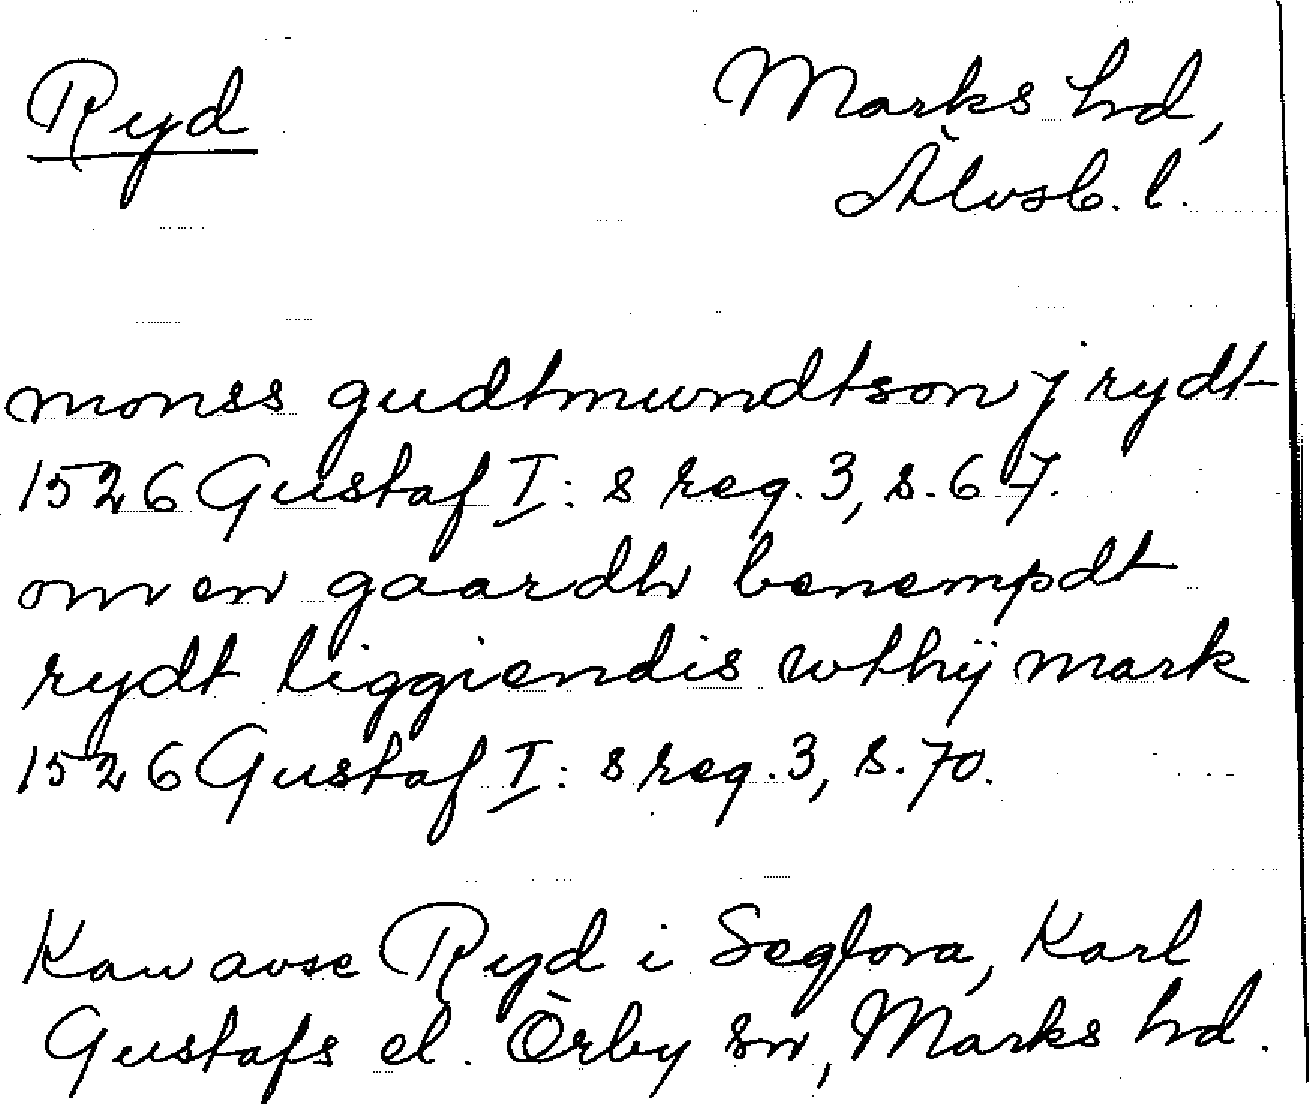 Ryd
Marks hd,
Älvsb. l.
monss gudtmundtson j rydt
1526 Gustaf I:s reg. 3, s. 67.
om en gaardh benempdt
rydt liggiendis wthij mark
1526 Gustaf I:s reg. 3, s. 70.
Kan avse Ryd i Seglora, Karl
Gustafs el. Örby sn, Marks hd.